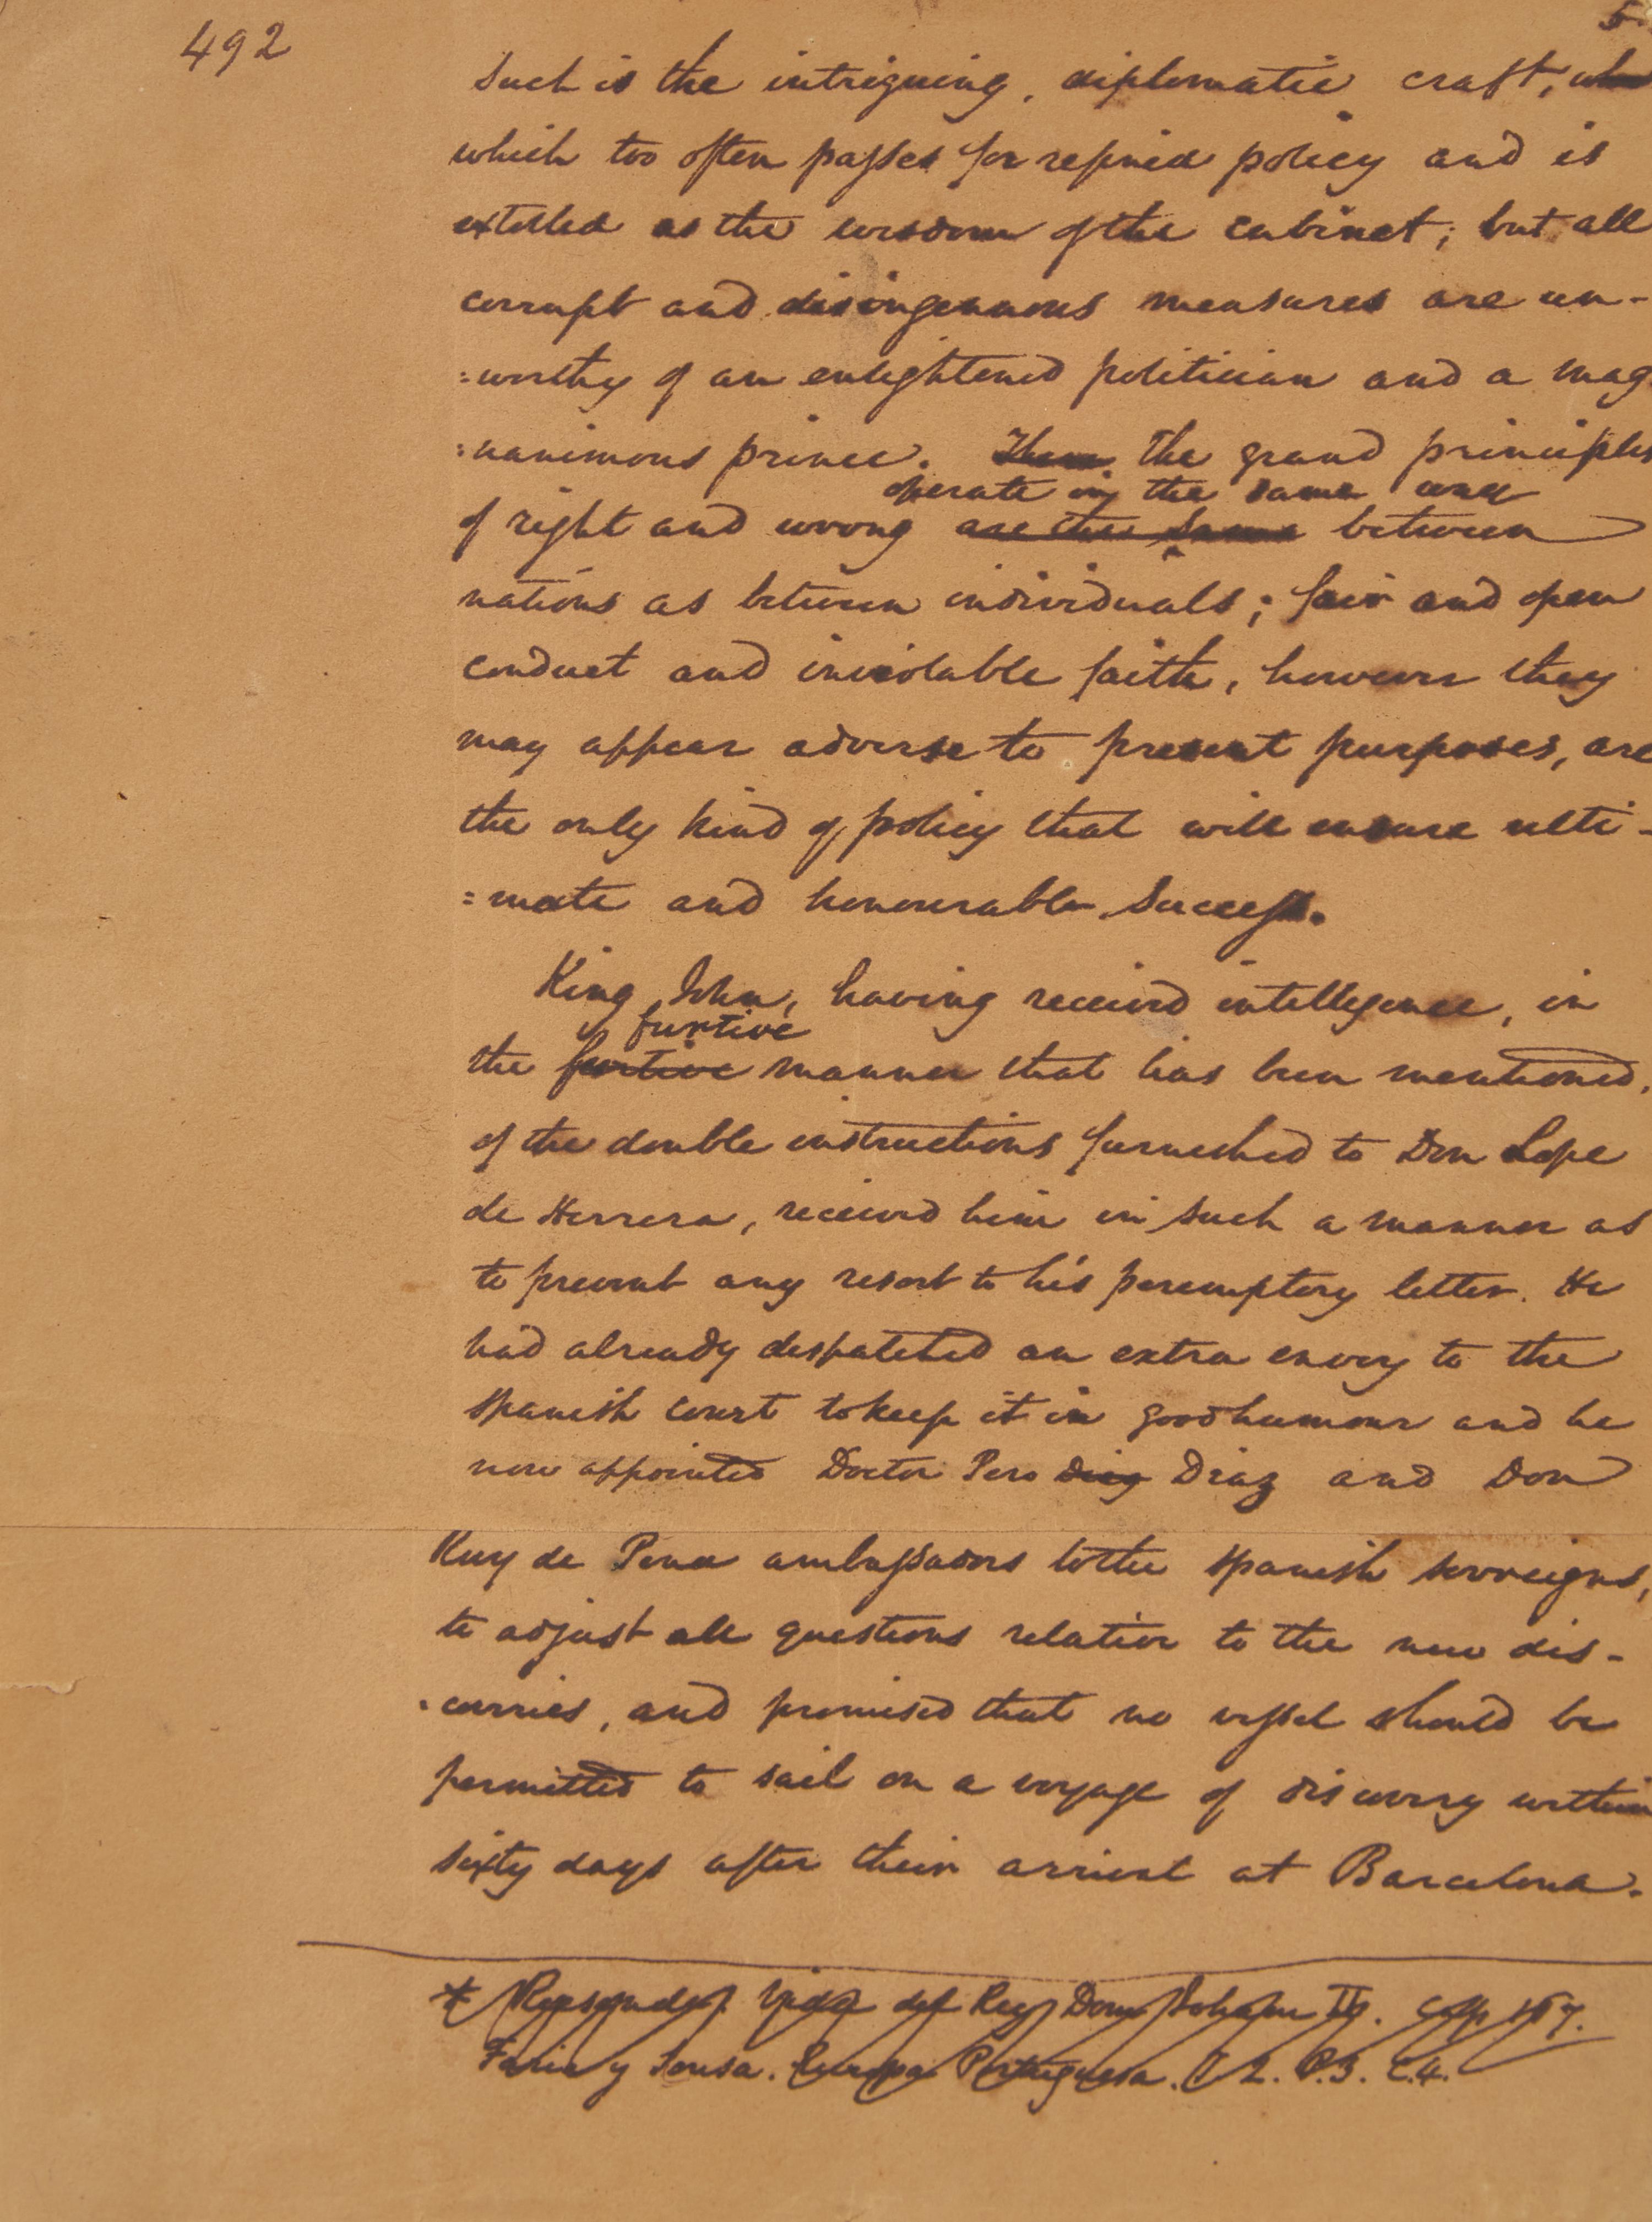 492
5
Such is the intriguing, diplomatic craft,
which too often passes for refined policy and is
extolled as the wisdom of the cabinet; but all
corrupt and disingenuous measures are un-
=worthy of an enlightened politician and a mag
=nanimous prince. The grand principles
operate in the same way
of right and wrong are the same between
nations as between individuals; fair and open
conduct and inviolable faith, however they
may appear adverse to present purposes, are
the only kind of policy that will ensure ulti-
=mate and honourable success.
King John, having received intelligence, in
furtive
the furtive manner that has been mentioned,
of the double instructions furnished to Don Lope
de Herrera, received him in such a manner as
to prevent any resort to his peremptory letter. He
had already despatched an extra envoy to the
Spanish court to keep it in good humour and he
now appointed Doctor Pero Diaz and Don
Ruy de Pena ambassadors to the Spanish sovreigns,
to adjust all questions relative to the new dis-
=coveries, and promised that no vessel should be
permitted to sail on a voyage of discovery within
sixty days after their arrival at Barcelona.
* Resende. Vida del Rey Dom Joham II. Cap 167.
Faria y Sousa. Europa Portuguesa. T 2. P.3. C.4.